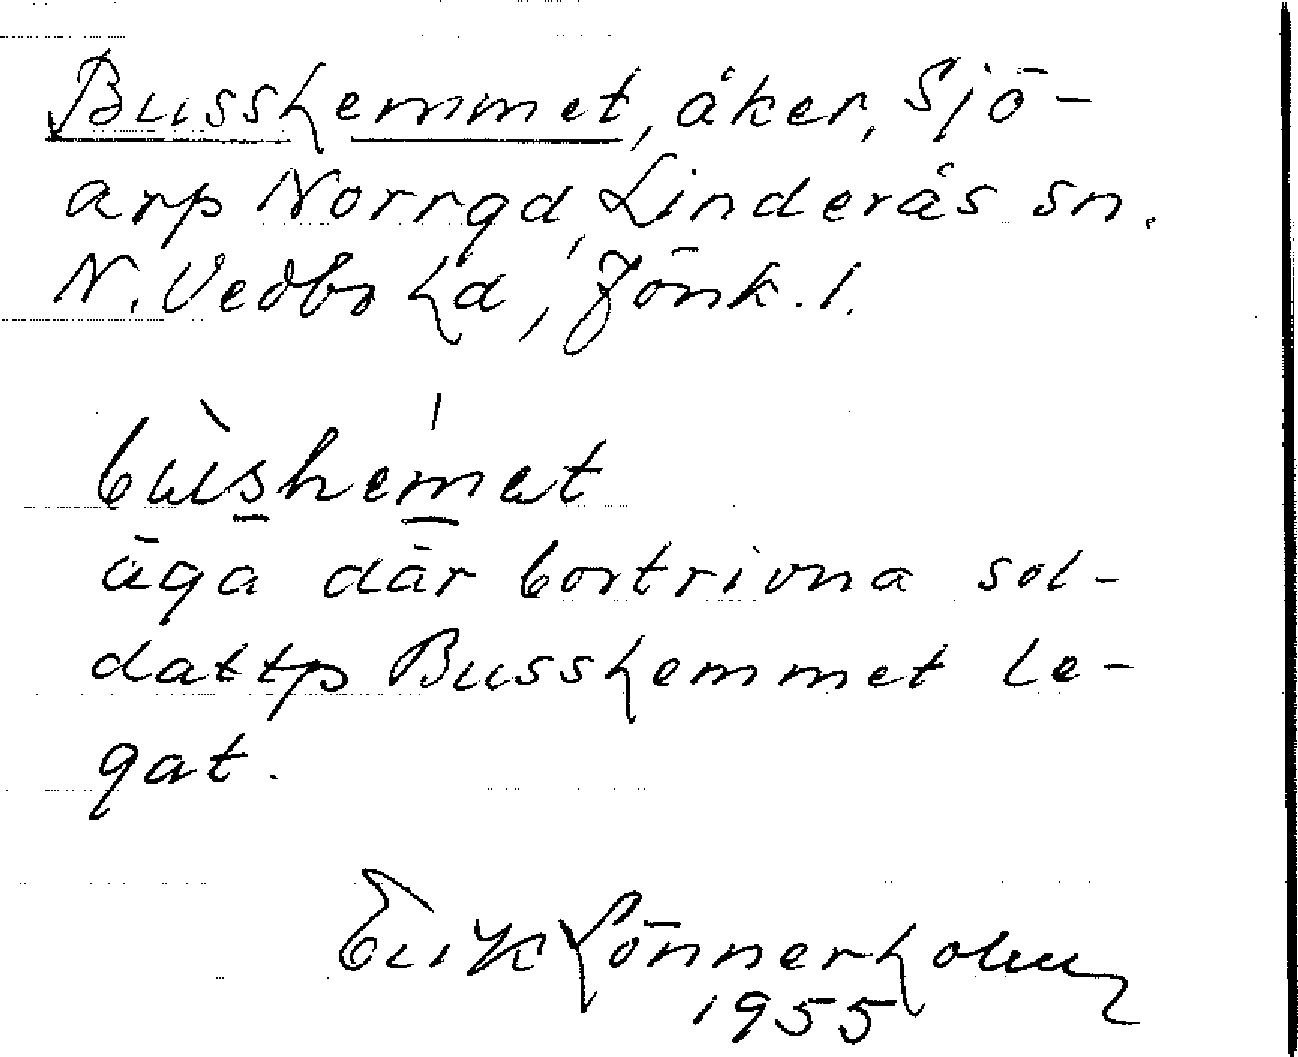 Busshemmet, åker, Sjö-
arp Norrgd, Linderås sn.
N. Vedbo hd, Jönk. l.
bùshemat
äga där bortrivna sol-
dattp Busshemmet le-
gat.
Erik Lönnerholm
1955